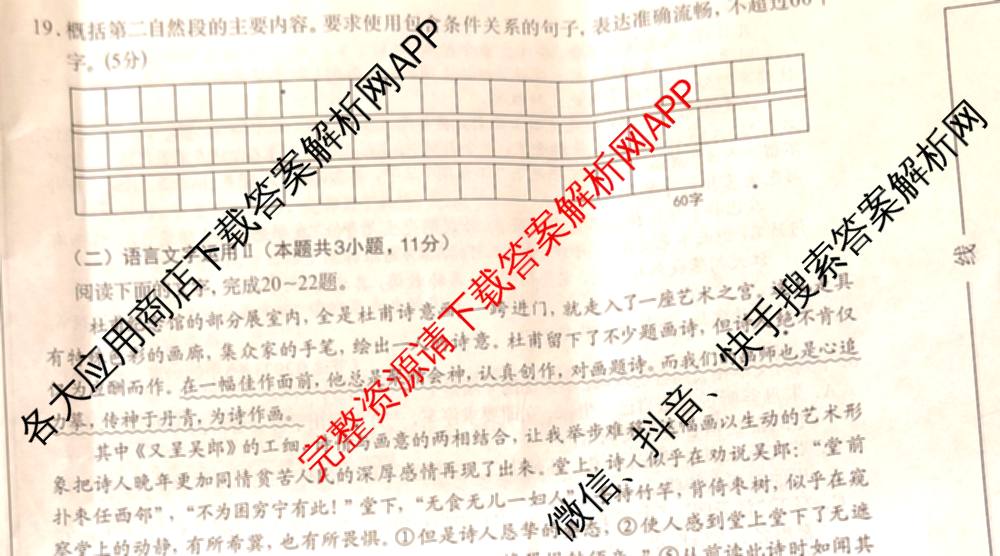 19. 概括第二自然段的主要内容。要求使用包含条件关系的句子，表达准确流畅，不超过60个
字。(5分)
60字
（二）语言文字运用Ⅱ（本题共3小题，11分）
阅读下面的文字，完成20~22题。
杜 馆的部分展室内，全是杜甫诗意画 跨进门，就走入了一座艺术之宫。 是具
有 色彩的画廊，集众家的手笔，绘出一 诗意。杜甫留下了不少题画诗，但 他不肯仅
为 酬而作。在一幅佳作面前，他总是 会神，认真创作，对画题诗。而我们 师也是心追
力摹，传神于丹青，为诗作画。
其中《又呈吴郎》的工细 与画意的两相结合，让我举步难 幅画以生动的艺术形
象把诗人晚年更加同情贫苦人民的深厚感情再现了出来。堂上，诗人似乎在劝说吴郎：“堂前
扑枣任西邻”，“不为困穷宁有此！”堂下，“无食无儿一妇人” 持竹竿，背倚枣树，似乎在窥
察堂上的动静，有所希冀，也有所畏惧。①但是诗人恳挚的 态，②使人感到堂上堂下了无遮
⑤从前读此诗时如闻其
线
各大应用商店下载答案解析网APP
完整资源请下载答案解析网APP
微信、抖音、快手搜索答案解析网